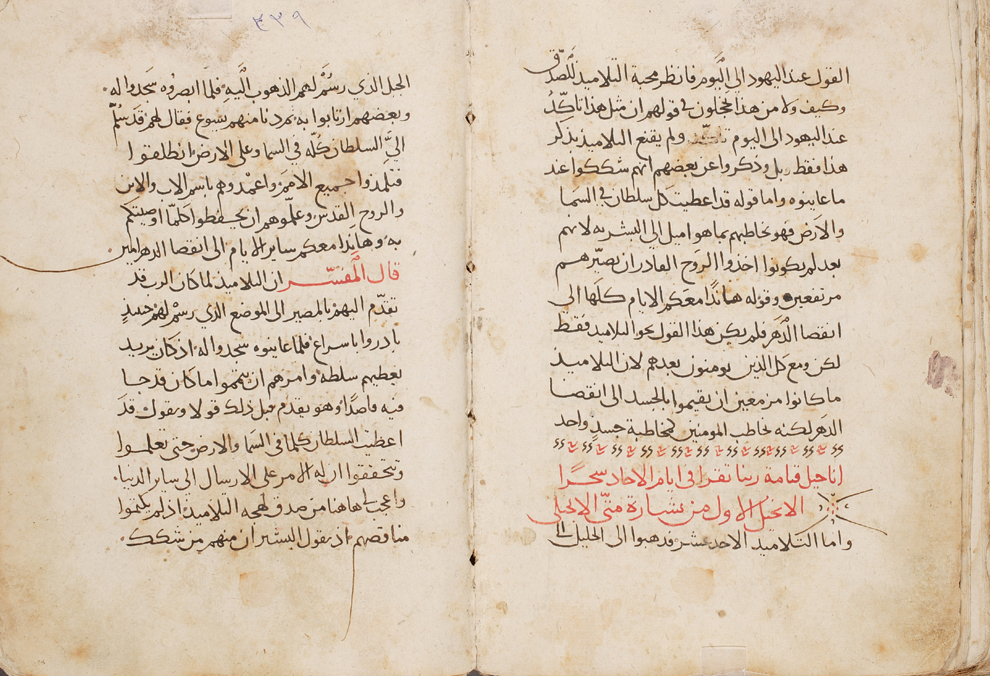 القول عند اليهود الى اليوم فانظر محبة التلاميذ للصدق
وكيف ولا من هذا يخجلون في قولهم ان مثل هذا تاكد
عند اليهود الى اليوم ولم يقنع التلاميذ بذكر
هذا فقط بل وذكروا عن بعضهم انهم شككوا عند
ما عاينوه واما قوله قد اعطيت كل سلطان في السما
والارض فهو يخاطبهم بما هو اميل الى البشريه لانهم
بعد لم يكونوا اخذوا الروح القادر ان يصيرهم
مرتفعين وقوله هانذا معكم الايام كلها الى
انقضا الدهر فلم يكن هذا القول نحو التلاميد فقط
لكن ومع كل الدين يومنون بعدهم لان التلاميد
ما كانوا مزمعين ان يقيموا بالجسد الى انقضا
الدهر لكنه يخاطب المومنين كمخاطبة جسد واحد
اناجيل قيامة ربنا تقرا في ايام الاحاد سحرا
الانجيل الاول من بشارة متى الانجيلي
واما التلاميد الاحد عشر فدهبوا الى الجليل الى
٣٣٩
الجبل الذي رسم لهم الذهوب اليه فلما ابصروه سجدوا له
وبعضهم ارتابوا به ثم دنا منهم يسوع فقال لهم قد سلم
الي السلطان كله في السما وعلى الارض انطلقوا
فتلمدوا جميع الامم واعمدوهم باسم الاب والابن
والروح القدس وعلموهم ان يحفظوا كلما اوصيتكم
به وهانذا معكم ساير الايام الى انقضا الدهر امين
قال المفسر ان التلاميد لما كان الرب قد
تقدم اليهم بالمصير الى الموضع الذي رسم لهم حينيذ
بادروا باسراع فلما عاينوه سجدوا له اذ كان يريد
يعطيهم سلطه وامرهم ان يتمموا ما كان قد جا
فيه قاصدا وهو يقدم قبل ذلك قولا ويقول قد
اعطيت السلطان كلما في السما والارض حتى تعلموا
وتحققوا ان له الامر على الارسال الى ساير الدنيا
واعجب لي هاهنا من صدق لهجه التلاميد اذ لم يكتموا
مناقصهم اذ يقول البشير ان منهم من شكك